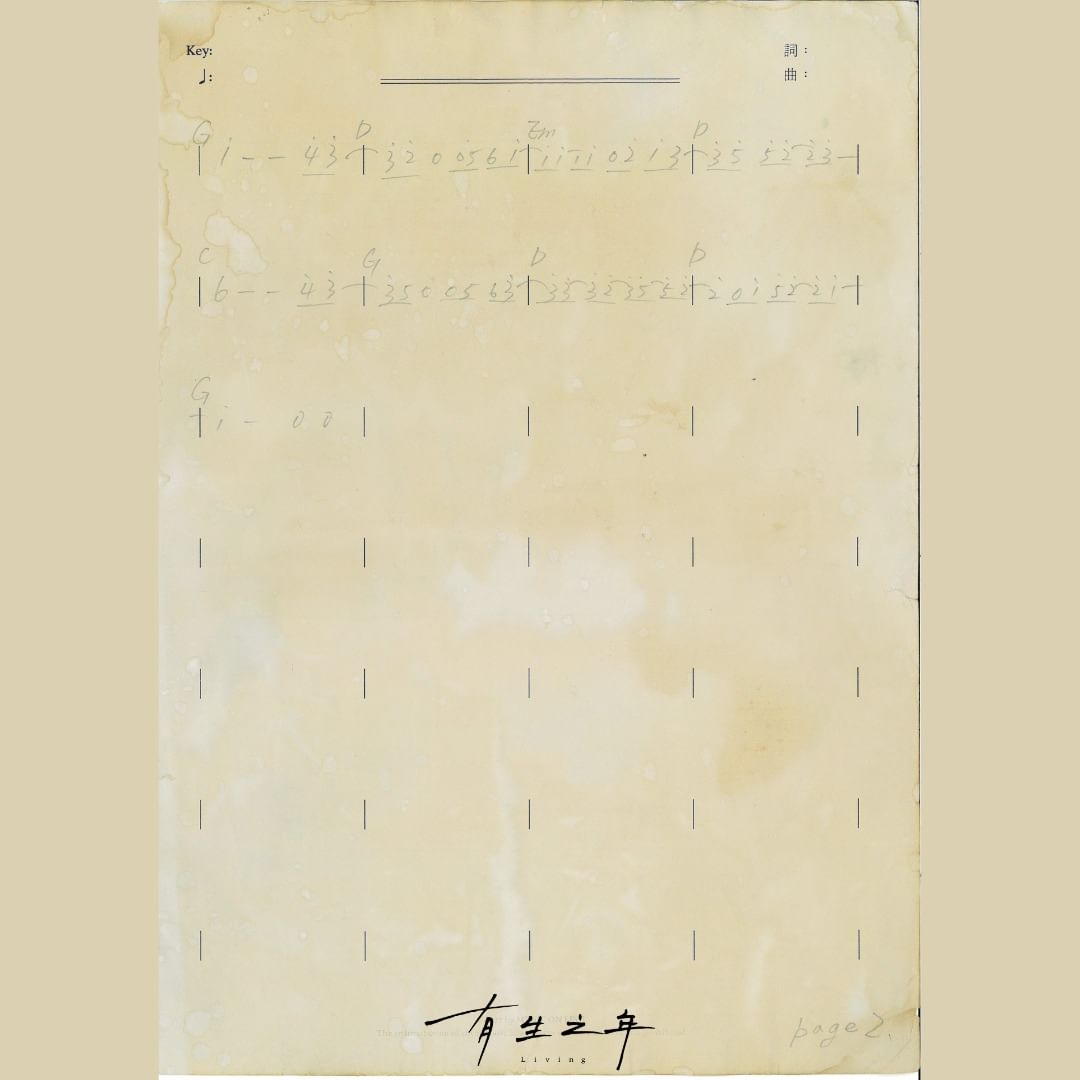 Key:
詞：
♩:
曲：
G D Em D
| i - - 4 3 | 3 2 0 0 5 6 i | i i i i 0 2 i 3 | 3 5 5 2 2 3 |
C G D D
| 6 - - 4 3 | 3 5 0 0 5 6 3 | 3 3 3 2 3 5 5 2 | 2 0 i 5 2 2 i |
G
| i - 0 0 |
有生之年
Living
page 2.